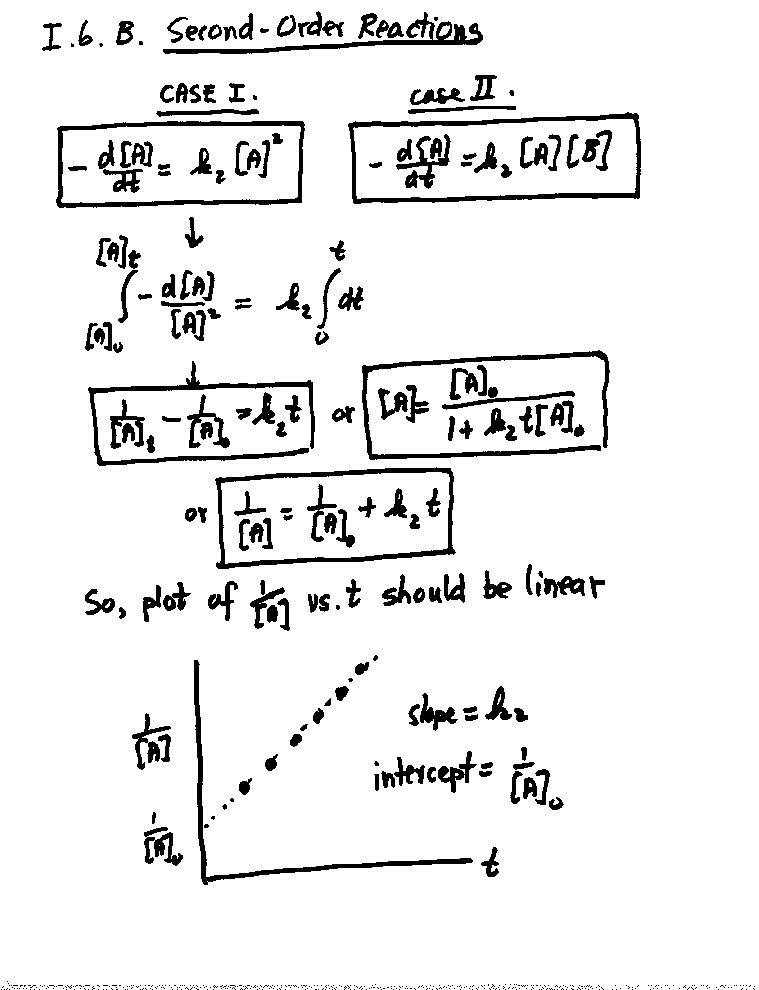 I.6. B. Second-Order Reactions
CASE I. case II.
-d[A]/dt = k₂ [A]² -d[A]/dt = k₂ [A][B]
↓
∫_{[A]₀}^{[A]t} -d[A]/[A]² = k₂ ∫₀^t dt
↓
1/[A]t - 1/[A]₀ = k₂t or [A] = [A]₀/(1 + k₂t[A]₀)
or 1/[A] = 1/[A]₀ + k₂ t
So, plot of 1/[A] vs. t should be linear
1/[A] slope = k₂
intercept = 1/[A]₀
1/[A]₀
t